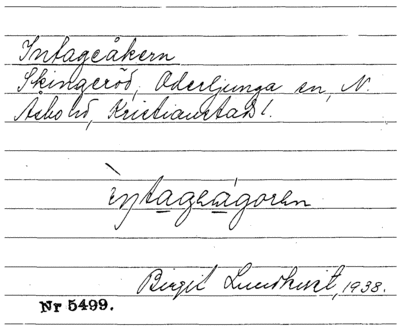 Intageåkern
Skingeröd, Oderljunga sn, N.
Åsbo hd, Kristianstads l.
Birgit Lundkvist, 1938.
Nr 5499.